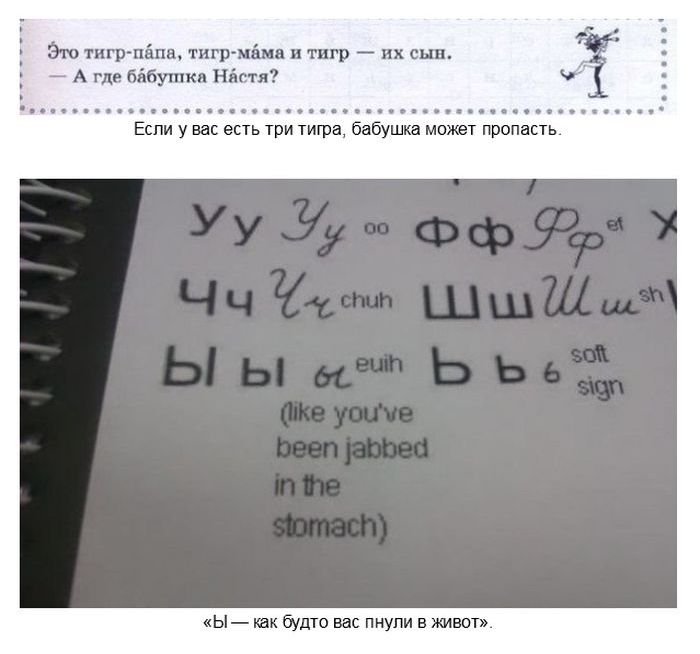 Э́то тигр-па́па, тигр-ма́ма и тигр — их сын.
— А где ба́бушка На́стя?
Если у вас есть три тигра, бабушка может пропасть.
Уу Уу oo Фф Фф ef Х
Чч Чч chuh Шш Шш sh
Ы ы ы euih Ь ь ь soft sign
(like you've
been jabbed
in the
stomach)
«Ы — как будто вас пнули в живот».